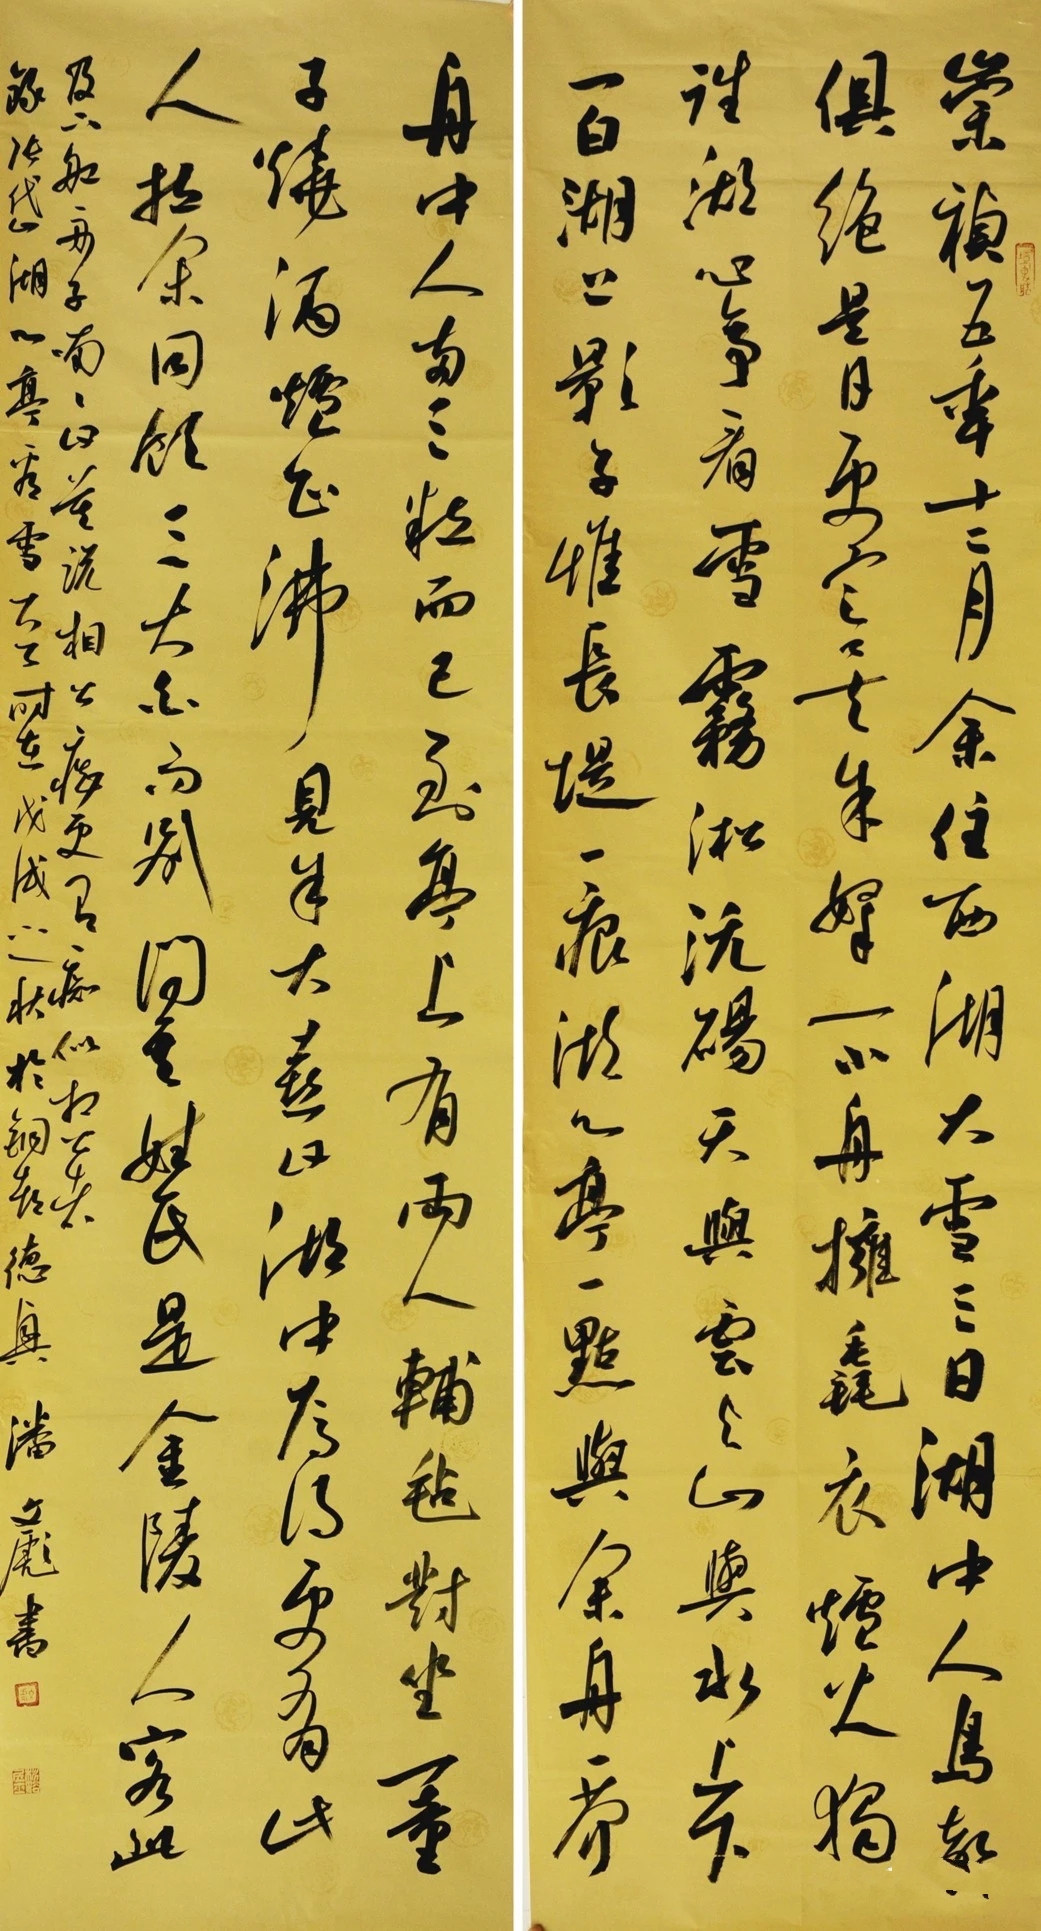 崇禎五年十二月余住西湖大雪三日湖中人鳥聲
俱絕是日更定矣余拏一小舟擁毳衣爐火獨
往湖心亭看雪霧凇沆碭天與雲与山與水上下
一白湖上影子惟長堤一痕湖心亭一點與余舟一芥
舟中人兩三粒而已到亭上有兩人輔毡對坐一童
子燒酒爐正沸見余大喜曰湖中焉得更有此
人拉余同飲三大白而別問其姓氏是金陵人客此
及下船舟子喃々曰莫說相公癡更有癡似相公者
錄張岱湖心亭看雪 時在戊戌之秋於銅都德興 潘文彪書